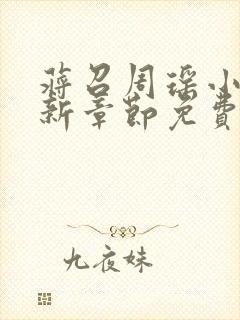 蒋召周瑶小
新章节免费
九夜妹